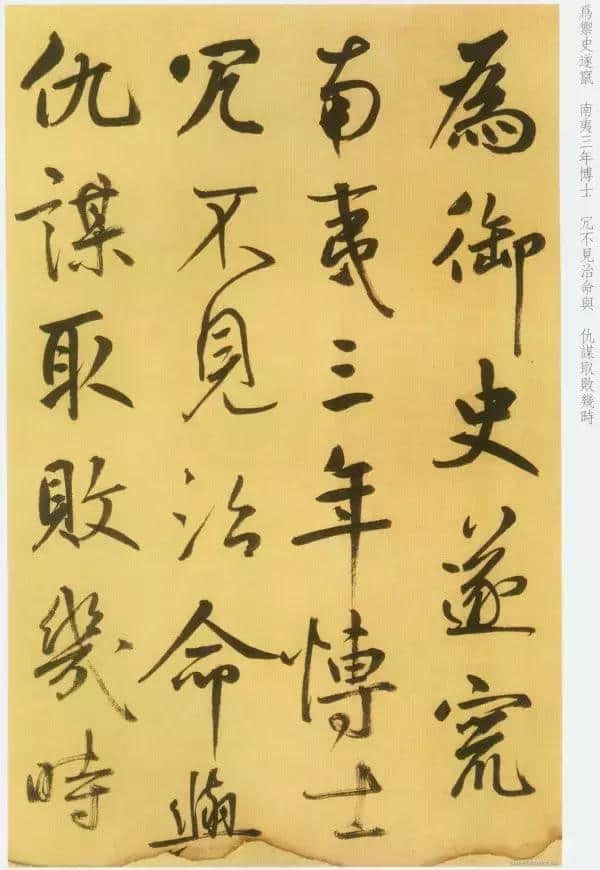 爲禦史遂竄　南夷三年博士　冗不見治命與　仇謀取敗幾時
為御史遂竄
南夷三年愽士
冗不見治命與
仇謀取敗幾時